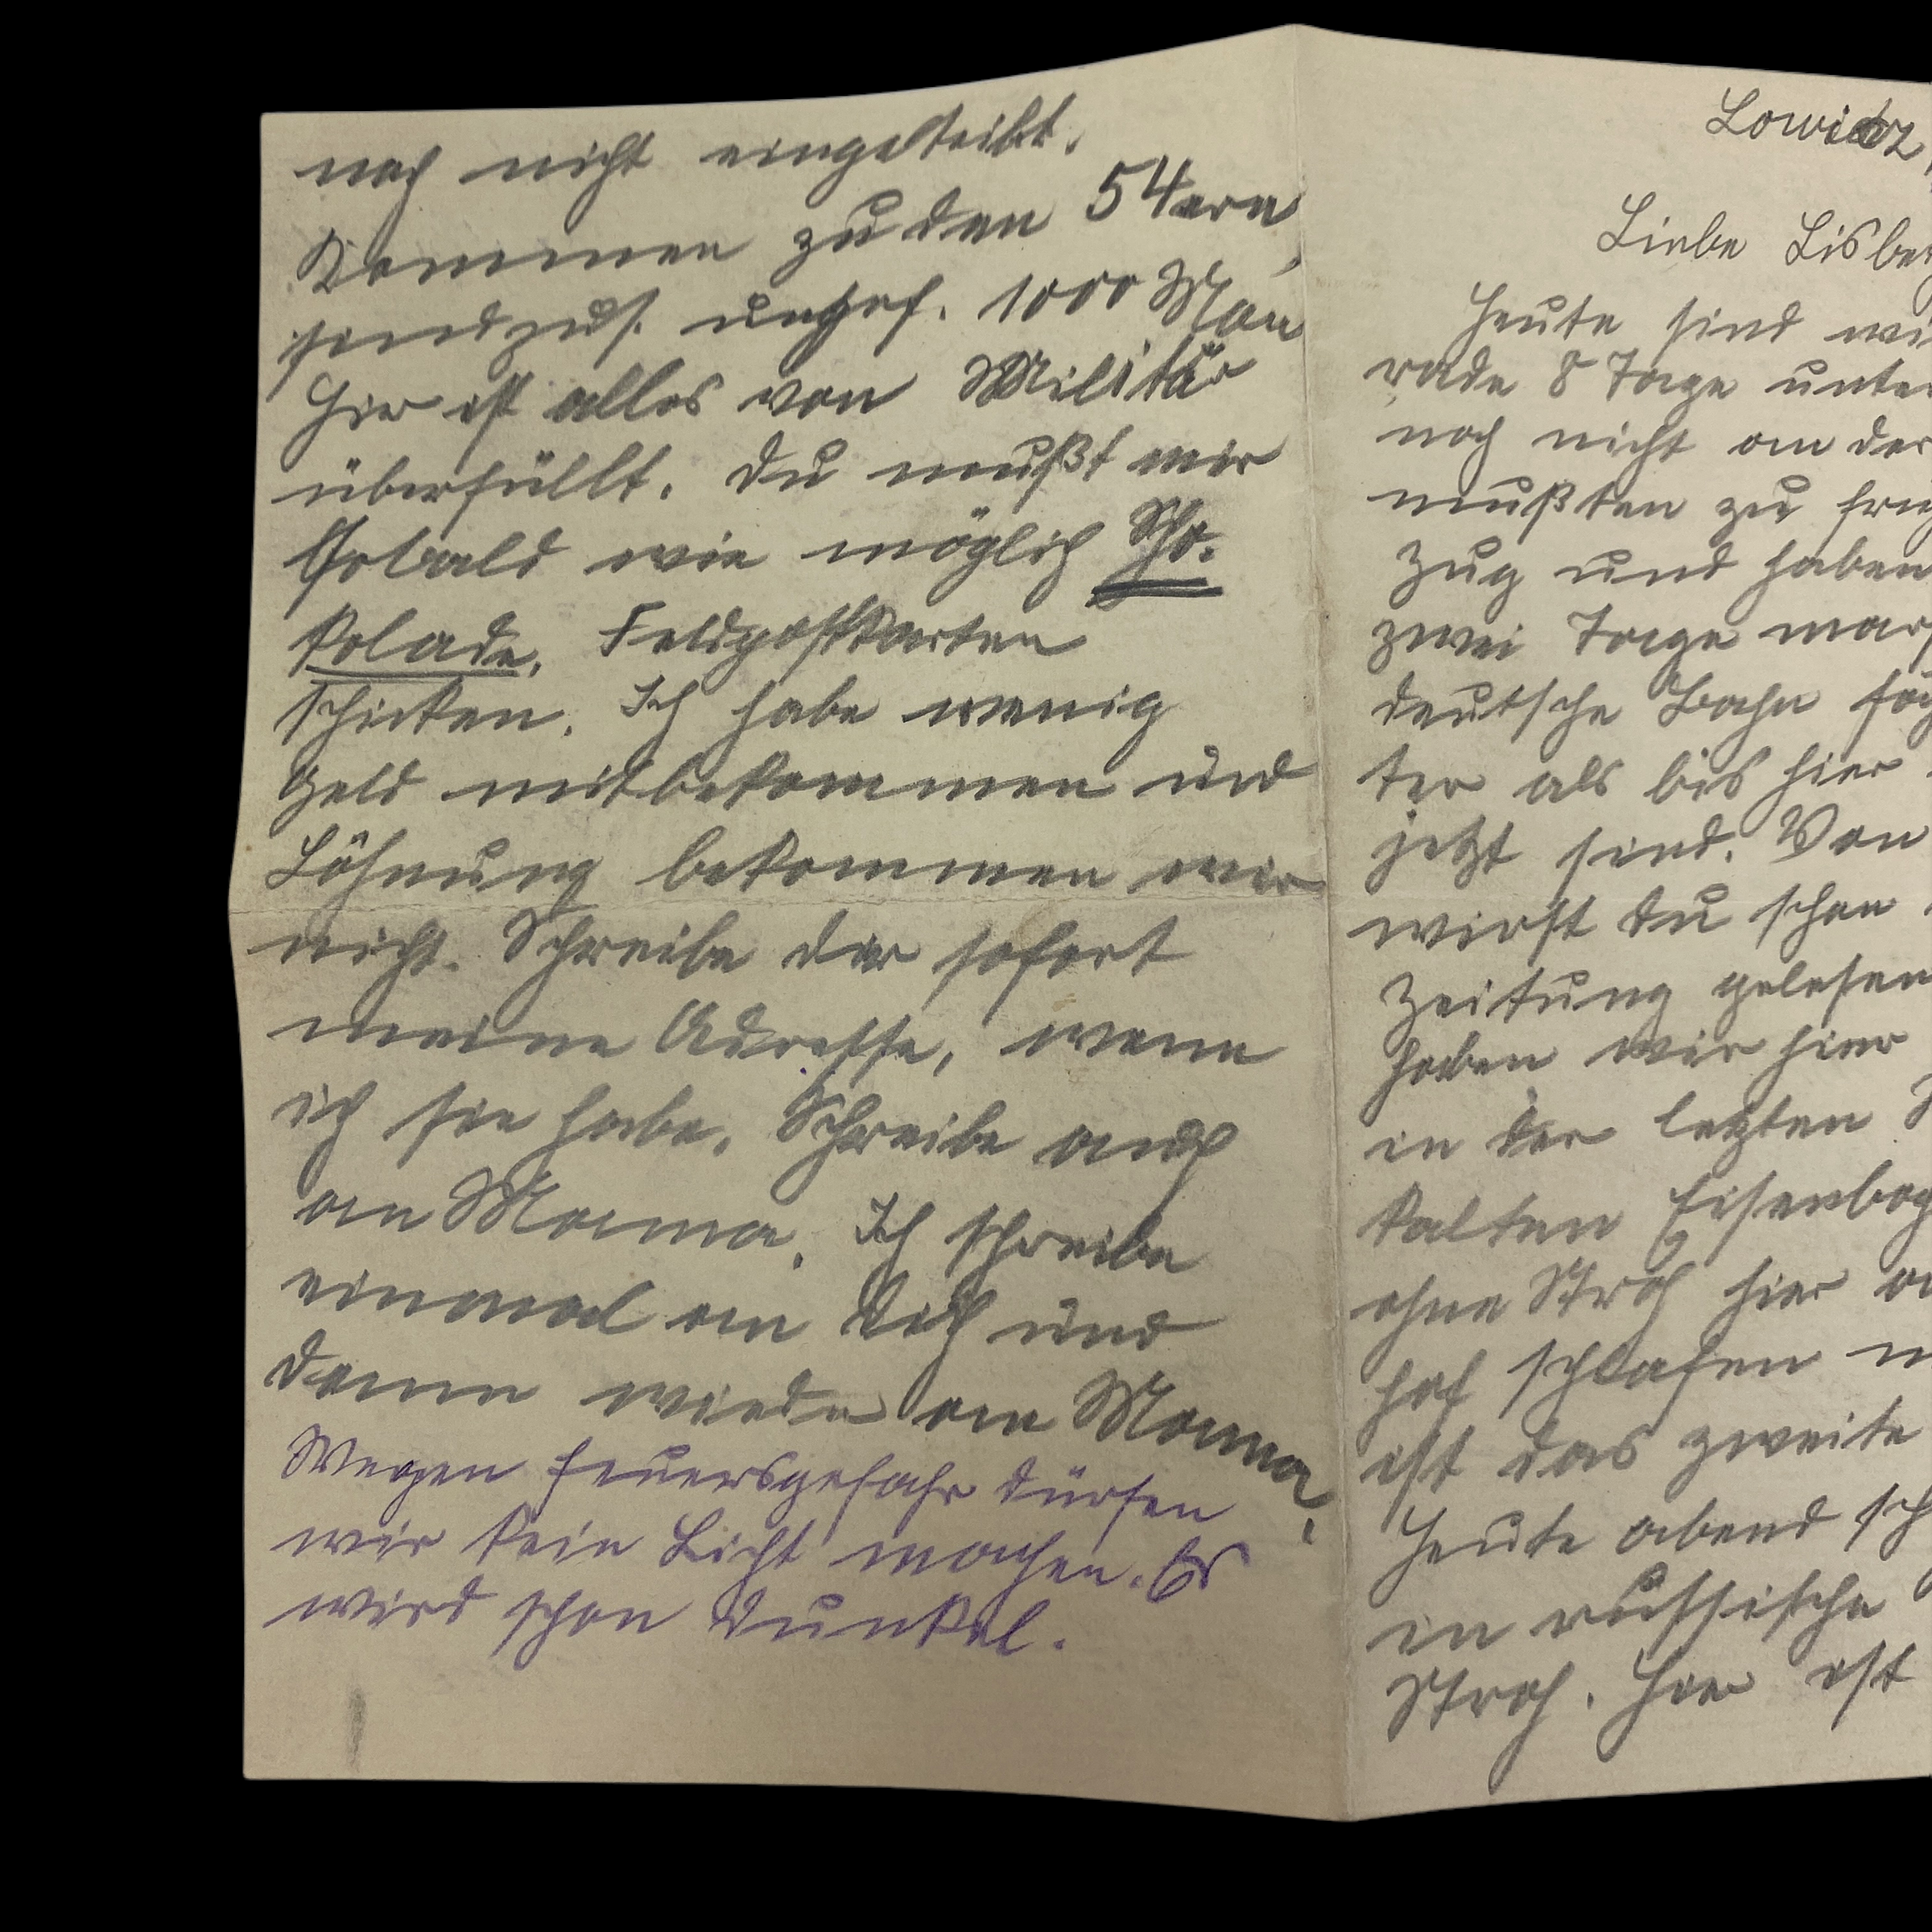 noch nicht eingeteilt.
Kommen zu den 54ern,
sind zus. ungef. 1000 Man
Hier ist alles von Militär
überfüllt. Du mußt mir
sobald wie möglich Scho-
kolade, Feldpostkarten
schicken. Ich habe wenig
Geld mitbekommen und
Löhnung bekommen wir
nicht. Schreibe dir sofort
meine Adresse, wenn
ich sie habe. Schreibe auch
an Mama. Ich schreibe
einmal an Dich und
dann wieder an Mama.
Wegen Feuersgefahr dürfen
wir kein Licht machen. Es
wird schon dunkel.
Lowicz,
Liebe Lisbe
Heute sind wi
rade 8 Tage unte
noch nicht an der
mußten zu
Zug und haben
zwei Tage mar
deutsche Bahn
ter als bis hier
jetzt sind. Von
wirst du schon
Zeitung gelesen
haben wir hier
in der letzten
kalten Eisenba
ohne Stroh hier a
hof schlafen m
ist das zweite
Heute abend sch
in russische
Stroh. Hier ist